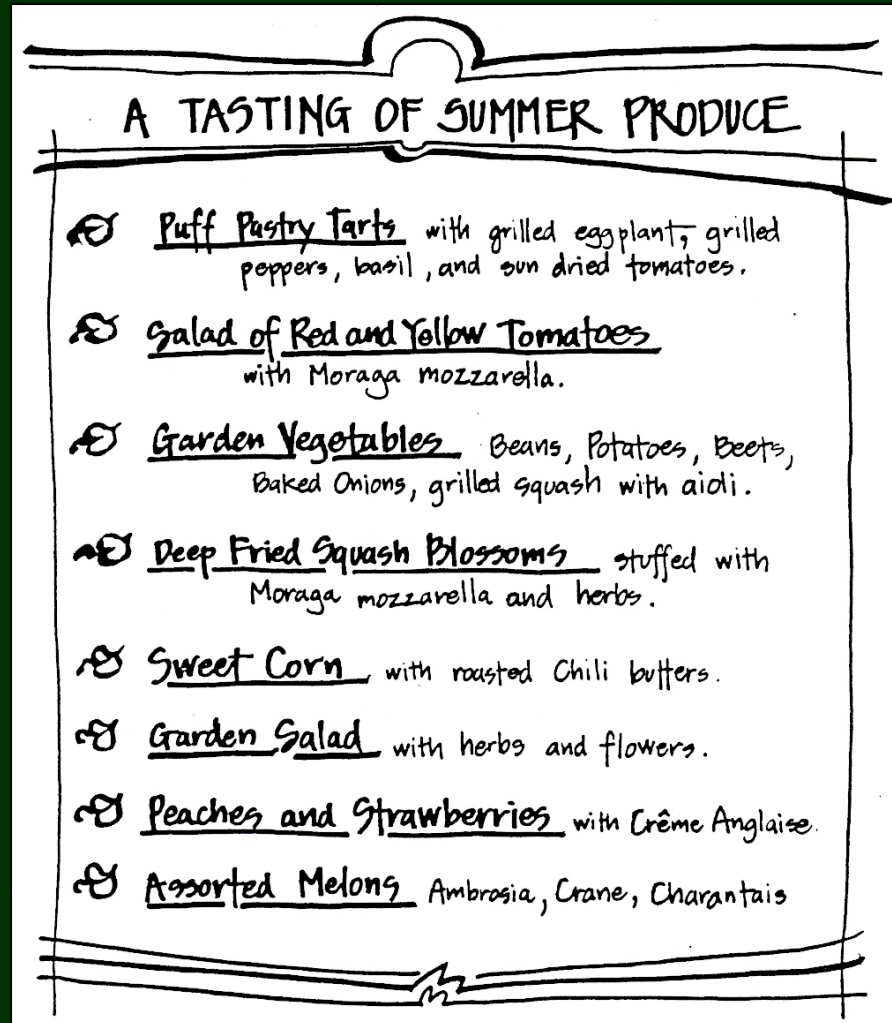 A TASTING OF SUMMER PRODUCE
Puff Pastry Tarts with grilled eggplant, grilled
peppers, basil, and sun dried tomatoes.
Salad of Red and Yellow Tomatoes
with Moraga mozzarella.
Garden Vegetables Beans, Potatoes, Beets,
Baked Onions, grilled squash with aioli.
Deep Fried Squash Blossoms stuffed with
Moraga mozzarella and herbs.
Sweet Corn with roasted Chili butters.
Garden Salad with herbs and flowers.
Peaches and Strawberries with Crême Anglaise.
Assorted Melons Ambrosia, Crane, Charantais